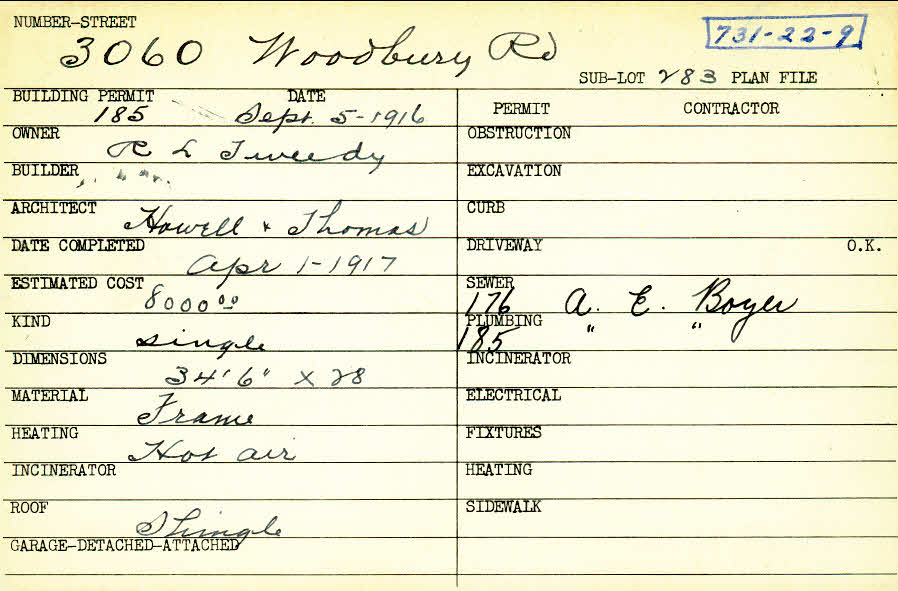 NUMBER-STREET
3060 Woodbury Rd
731-22-9
SUB-LOT 283 PLAN FILE
BUILDING PERMIT DATE
185 Sept. 5-1916
PERMIT CONTRACTOR
OWNER
R L Tweedy
OBSTRUCTION
BUILDER
EXCAVATION
ARCHITECT
Howell & Thomas
CURB
DATE COMPLETED
Apr 1-1917
DRIVEWAY O.K.
ESTIMATED COST
8000 00
SEWER
176 A. E. Boyer
KIND
single
PLUMBING
185 " "
DIMENSIONS
34'6" X 28
INCINERATOR
MATERIAL
Frame
ELECTRICAL
HEATING
Hot air
FIXTURES
INCINERATOR
HEATING
ROOF
Shingle
SIDEWALK
GARAGE-DETACHED-ATTACHED